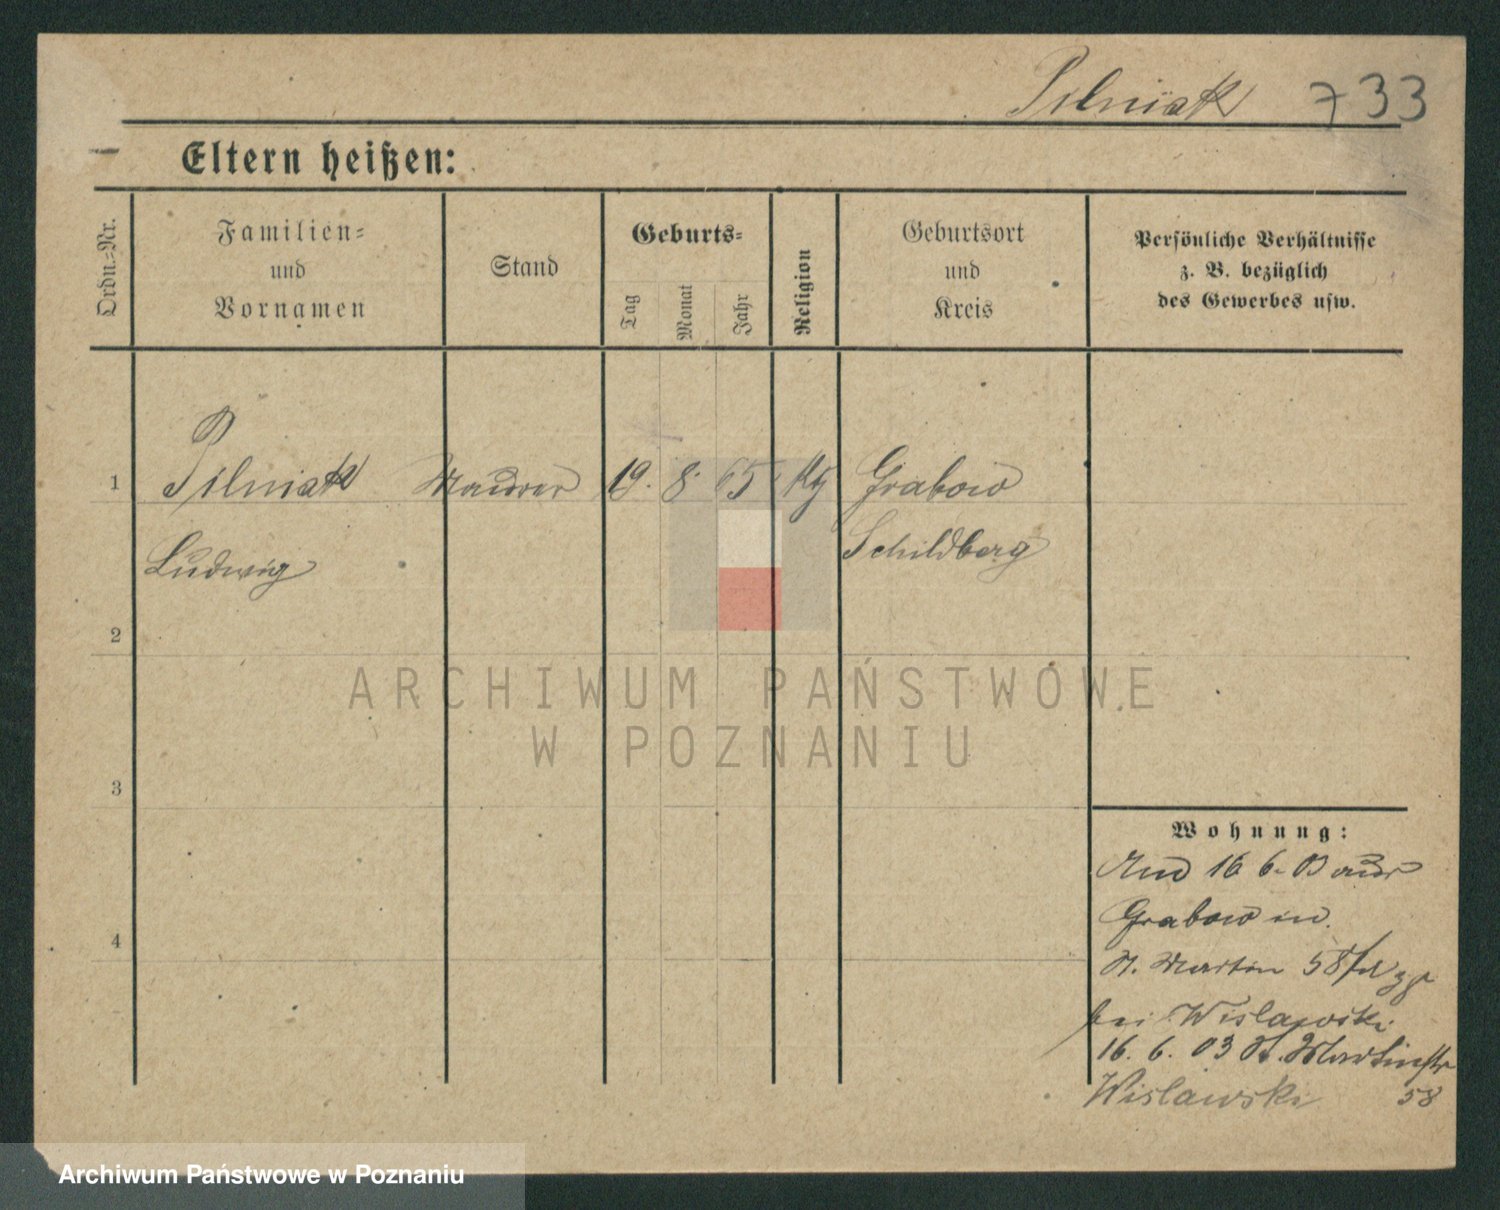 Pilniak 733
Eltern heißen:
Ordn.-Nr.
Familien-
und
Vornamen
Stand
Geburts-
Tag
Monat
Jahr
Religion
Geburtsort
und
Kreis
Persönliche Verhältnisse
z. B. bezüglich
des Gewerbes usw.
1 Pilniak Maurer 19. 8. 65 Grabow
Ludwig Schildberg
2
3
4
ARCHIWUM PAŃSTWOWE
W POZNANIU
Wohnung:
16 6. 03 aus
Grabow in
St. Martin 58
bei Wislawski
16. 6. 03 St. Martinstr
Wislawski 58
Archiwum Państwowe w Poznaniu